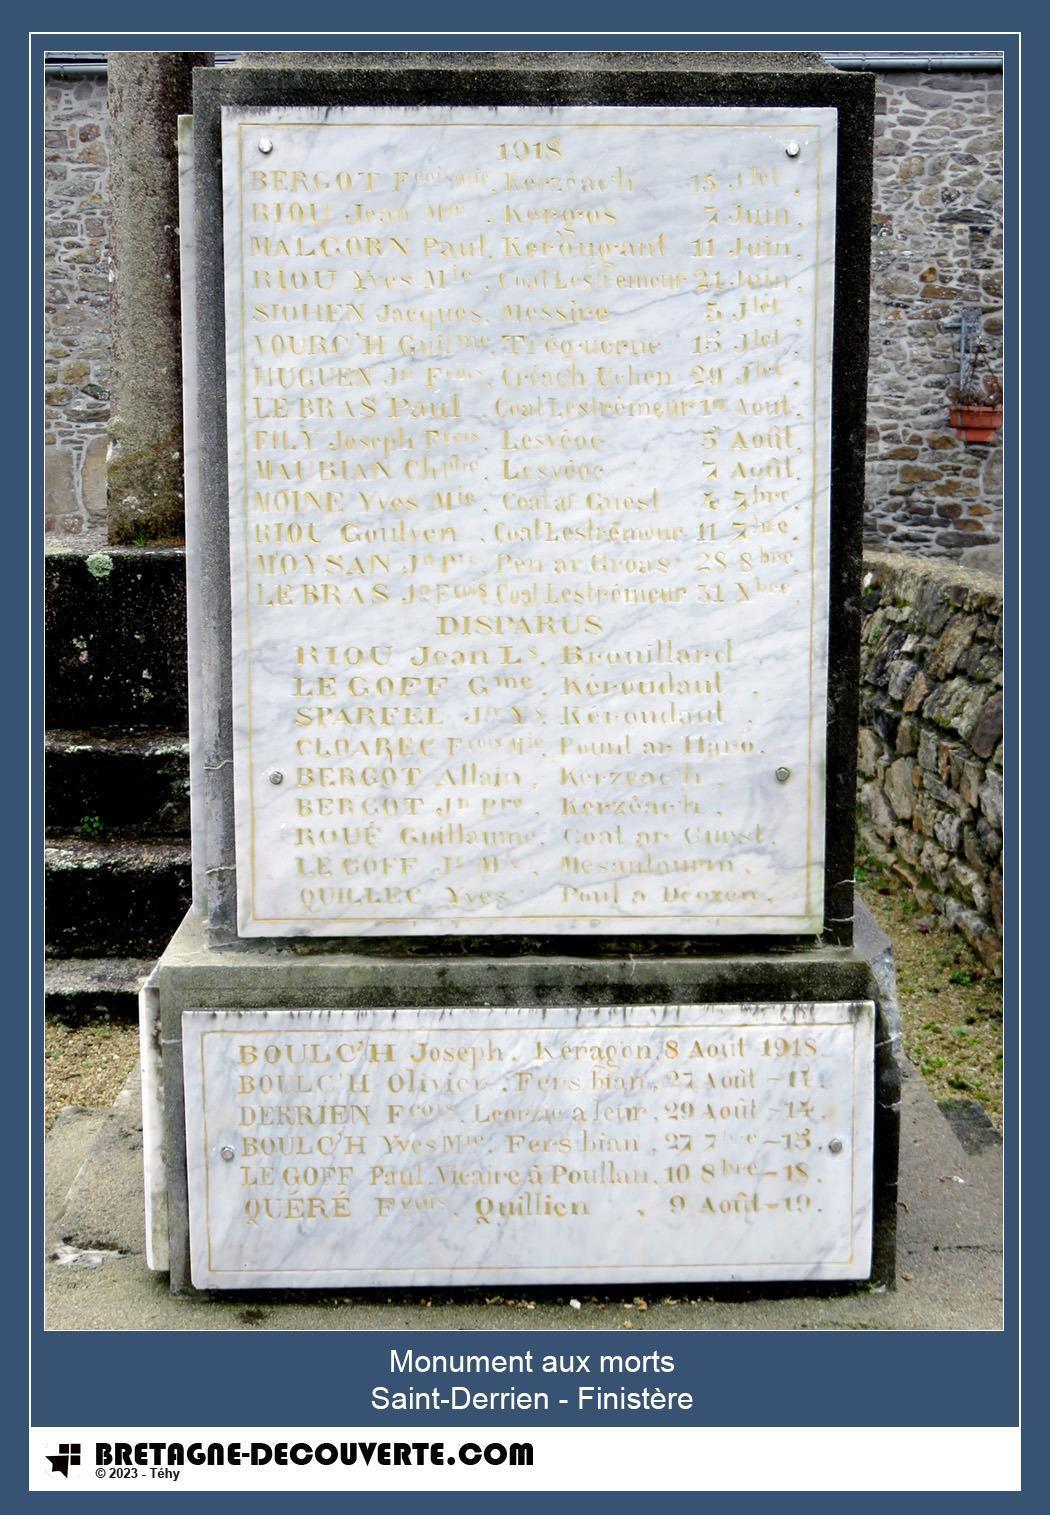 1918
BERGOT Fcois Mie, Kerzéach 15 Jlet,
RIOU Jean Mie, Kergos 7 Juin,
MALGORN Paul, Kerougant 11 Juin,
RIOU Yves Mie, Coat Lestrémeur 21 Juin,
SIOHEN Jacques, Messire 5 Jlet,
VOURC'H Guilme, Tréguerne 15 Jlet,
HUGUEN Jn Frcois, Créach Uchen 29 Jlet,
LE BRAS Paul, Coat Lestrémeur 1er Août,
FILY Joseph Frcois, Lesvéoc 5 Août,
MAUBIAN Chphe, Lesvéoc 7 Août,
MOINE Yves Mie, Coat ar Guest 4 7bre,
RIOU Goulven, Coat Lestrémeur 11 7bre,
MOYSAN Jn Pre, Pen ar Groas 28 8bre
LE BRAS Jn Fcois, Coat Lestrémeur 31 Xbre,
DISPARUS
RIOU Jean Ls, Brouillard,
LE GOFF Gme, Kéroudaut,
SPARFEL Jn Ys, Kéroudaut,
CLOAREC Fcois Mie, Pount ar Haro,
BERGOT Allain, Kerzéach,
BERGOT Jn Pre, Kerzéach,
ROUÉ Guillaume, Coat ar Guest,
LE GOFF Jh Mie,
QUILLEC Yves Poul a Deozen,
BOULC'H Joseph, Kéragon, 8 Août 1918.
BOULC'H Olivier, Fers bian, 27 Août -17.
DERRIEN Fcois, 29 Août -14.
BOULC'H Yves Mie, Fers bian, 27 7bre -15.
LE GOFF Paul Vicaire à Poullan, 10 8bre -18.
QUÉRÉ Frcois, Quillien, 9 Août -19.
Monument aux morts
Saint-Derrien - Finistère
BRETAGNE-DECOUVERTE.COM
© 2023 - Téhy